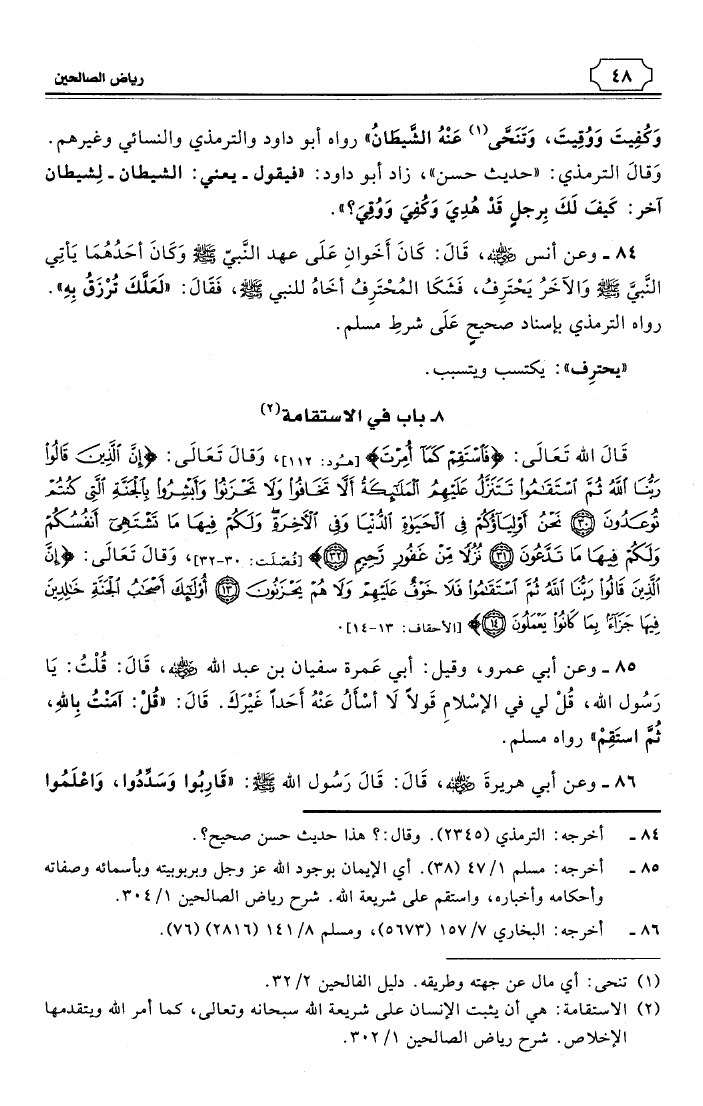 ٤٨
رياض الصالحين
وَكُفِيتَ وَوُقِيتَ، وَتَنَحَّى(١) عَنْهُ الشَّيطَانُ» رواه أبو داود والترمذي والنسائي وغيرهم.
وَقالَ الترمذي: «حديث حسن»، زاد أبو داود: «فيقول - يعني: الشيطان - لِشيطان
آخر: كَيفَ لَكَ بِرجلٍ قَدْ هُدِيَ وَكُفِيَ وَوُقِيَ؟».
٨٤ - وعن أنس ﷺ، قَالَ: كَانَ أَخَوانِ عَلَى عهد النَّبيّ ﷺ وَكَانَ أحَدُهُمَا يَأتِي
النَّبيَّ ﷺ وَالآخَرُ يَحْتَرِفُ، فَشَكَا المُحْتَرِفُ أخَاهُ للنبي ﷺ، فَقَالَ: «لَعَلَّكَ تُرْزَقُ بِهِ».
رواه الترمذي بإسناد صحيحٍ عَلَى شرطِ مسلم.
«يحترِف»: يكتسب ويتسبب.
٨ـ باب في الاستقامة(٢)
قَالَ الله تَعَالَى: ﴿فَٱسْتَقِمْ كَمَآ أُمِرْتَ﴾ [هُود: ١١٢]، وَقالَ تَعَالَى: ﴿إِنَّ ٱلَّذِينَ قَالُوا۟
رَبُّنَا ٱللَّهُ ثُمَّ ٱسْتَقَٰمُوا۟ تَتَنَزَّلُ عَلَيْهِمُ ٱلْمَلَٰٓئِكَةُ أَلَّا تَخَافُوا۟ وَلَا تَحْزَنُوا۟ وَأَبْشِرُوا۟ بِٱلْجَنَّةِ ٱلَّتِى كُنتُمْ
تُوعَدُونَ ﴿٣٠﴾ نَحْنُ أَوْلِيَآؤُكُمْ فِى ٱلْحَيَوٰةِ ٱلدُّنْيَا وَفِى ٱلْءَاخِرَةِ وَلَكُمْ فِيهَا مَا تَشْتَهِىٓ أَنفُسُكُمْ
وَلَكُمْ فِيهَا مَا تَدَّعُونَ ﴿٣١﴾ نُزُلًا مِّنْ غَفُورٍ رَّحِيمٍ ﴿٣٢﴾﴾ [فُصّلَت: ٣٠-٣٢]، وَقالَ تَعَالَى: ﴿إِنَّ
ٱلَّذِينَ قَالُوا۟ رَبُّنَا ٱللَّهُ ثُمَّ ٱسْتَقَٰمُوا۟ فَلَا خَوْفٌ عَلَيْهِمْ وَلَا هُمْ يَحْزَنُونَ ﴿١٣﴾ أُو۟لَٰٓئِكَ أَصْحَٰبُ ٱلْجَنَّةِ خَٰلِدِينَ
فِيهَا جَزَآءًۢ بِمَا كَانُوا۟ يَعْمَلُونَ ﴿١٤﴾﴾ [الأحقاف: ١٣-١٤].
٨٥ - وعن أبي عمرو، وقيل: أبي عَمرة سفيان بن عبد الله رضي الله عنه، قَالَ: قُلْتُ: يَا
رَسُول الله، قُلْ لي في الإسْلامِ قَولاً لَا أسْأَلُ عَنْهُ أَحَداً غَيْرَكَ. قَالَ: «قُلْ: آمَنْتُ بِاللهِ،
ثُمَّ استَقِمْ» رواه مسلم.
٨٦ - وعن أبي هريرةَ رضي الله عنه، قَالَ: قَالَ رَسُول الله ﷺ: «قَارِبُوا وَسَدِّدُوا، وَاعْلَمُوا
٨٤ ـ أخرجه: الترمذي (٢٣٤٥). وقال:؟ هذا حديث حسن صحيح؟.
٨٥ ـ أخرجه: مسلم ٤٧/١ (٣٨). أي الإيمان بوجود الله عز وجل وبربوبيته وبأسمائه وصفاته
وأحكامه وأخباره، واستقم على شريعة الله. شرح رياض الصالحين ٣٠٤/١.
٨٦ ـ أخرجه: البخاري ١٥٧/٧ (٥٦٧٣)، ومسلم ١٤١/٨ (٢٨١٦) (٧٦).
(١) تنحى: أي مال عن جهته وطريقه. دليل الفالحين ٣٢/٢.
(٢) الاستقامة: هي أن يثبت الإنسان على شريعة الله سبحانه وتعالى، كما أمر الله ويتقدمها
الإخلاص. شرح رياض الصالحين ٣٠٢/١.